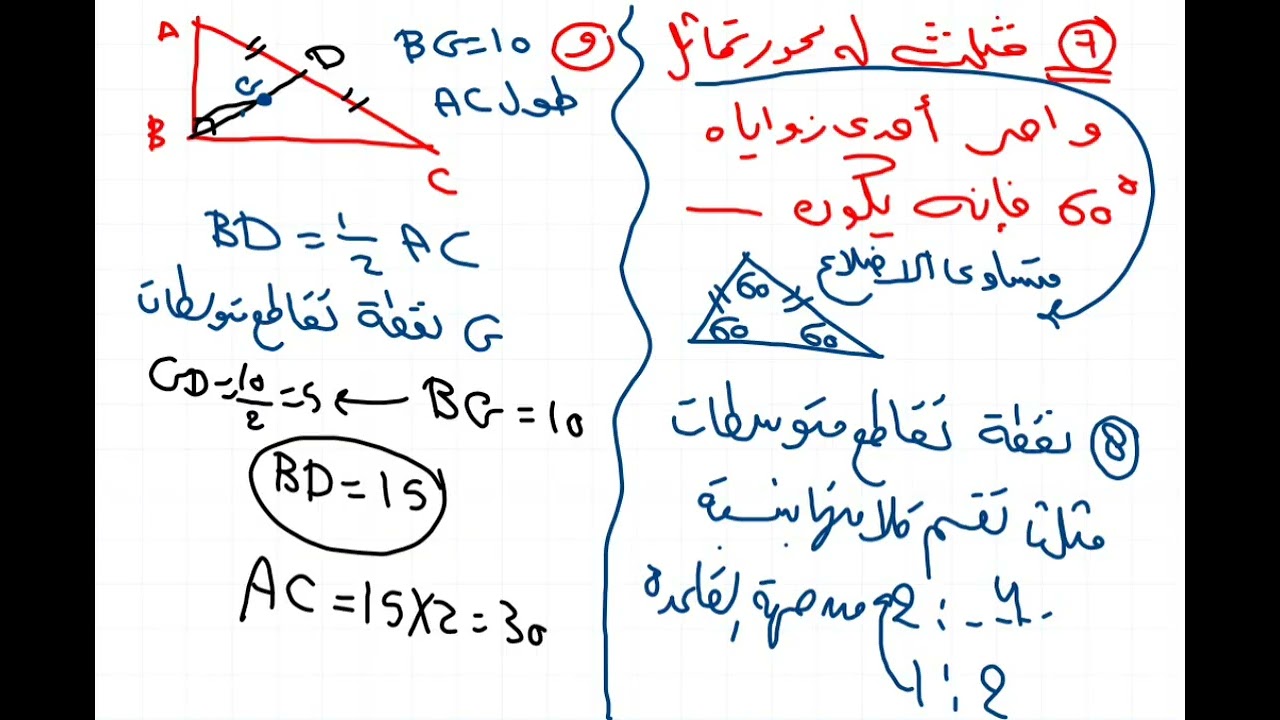 ٧ مثلث له محور تماثل
واحد أحدى زواياه
60° فإنه يكون ــــ
متساوى الاضلاع
60
60 60
8 نقطة تقاطع متوسطات
مثلث تقسم كلا منها بنسبة
4 : 2 من جهة القاعدة
2 : 1
و BG=10
طول AC
A
D
G
B
C
BD = 1/2 AC
G نقطة تقاطع متوسطات
BG = 10 ← GD = 10/2 = 5
BD = 15
AC = 15X2 = 30